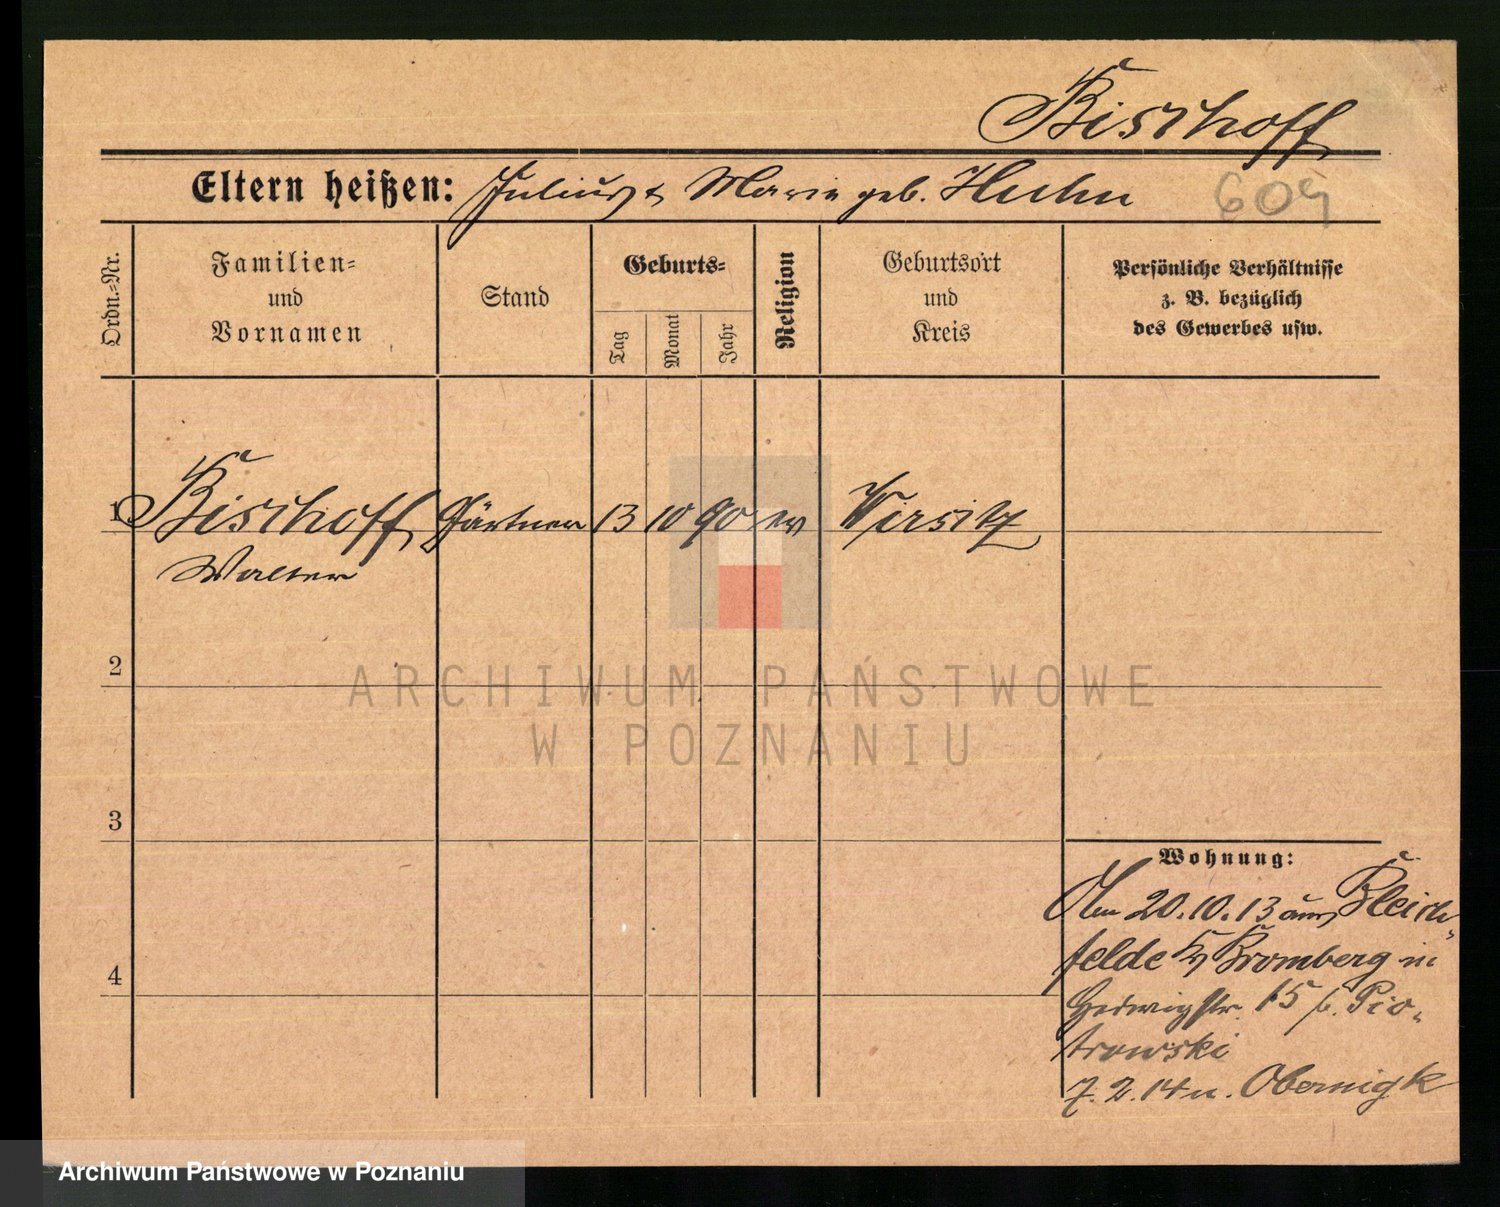 Bischoff
Eltern heißen: Julius & Marie geb. Huhn 609
Ordn.-Nr.
Familien-
und
Vornamen
Stand
Geburts-
Tag
Monat
Jahr
Religion
Geburtsort
und
Kreis
Persönliche Verhältnisse
z. B. bezüglich
des Gewerbes usw.
1 Bischoff Gärtner 13 10 90 ev Wirsitz
Walter
2
ARCHIWUM PAŃSTWOWE
W POZNANIU
3
Wohnung:
Am 20.10.13 aus Bleich-
felde Kr Bromberg in
4
Hedwigstr. 15 b. Pio-
trowski
7.2.14 n. Obernigk
Archiwum Państwowe w Poznaniu